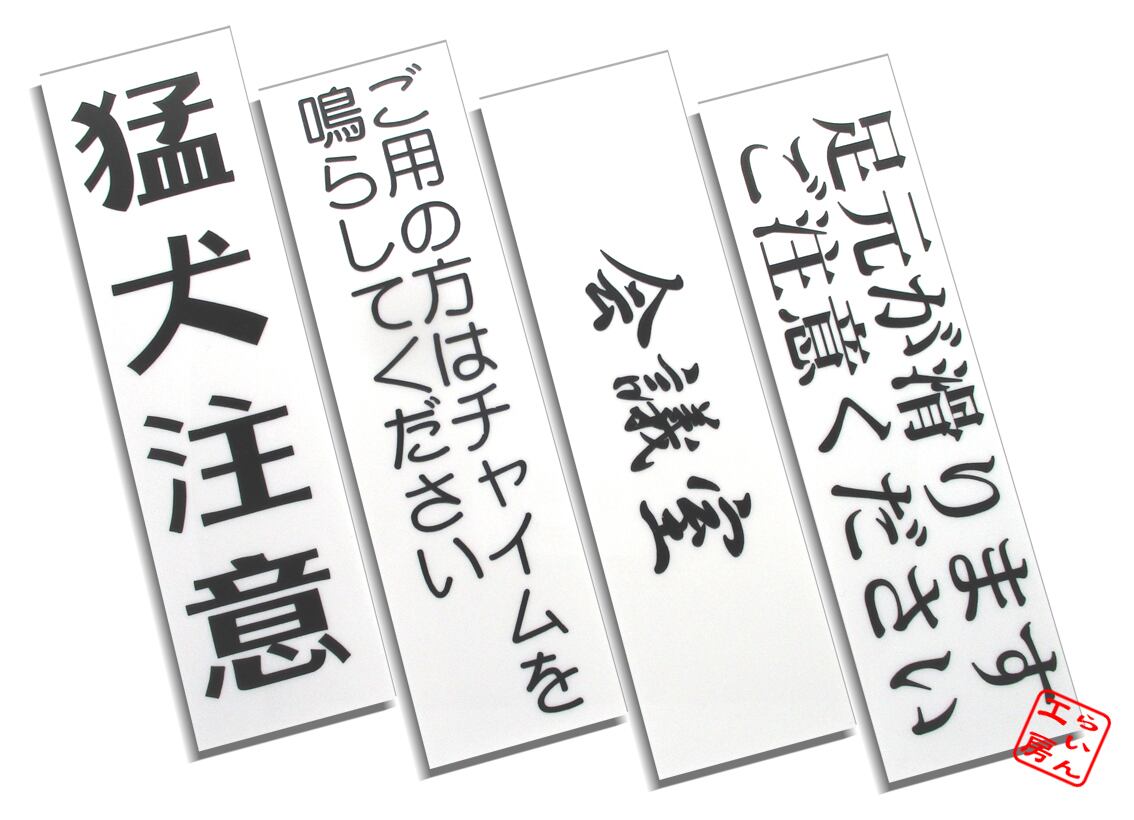 猛犬注意
ご用の方はチャイムを
鳴らしてください
会議室
足元が滑ります
ご注意ください
らいん
工房